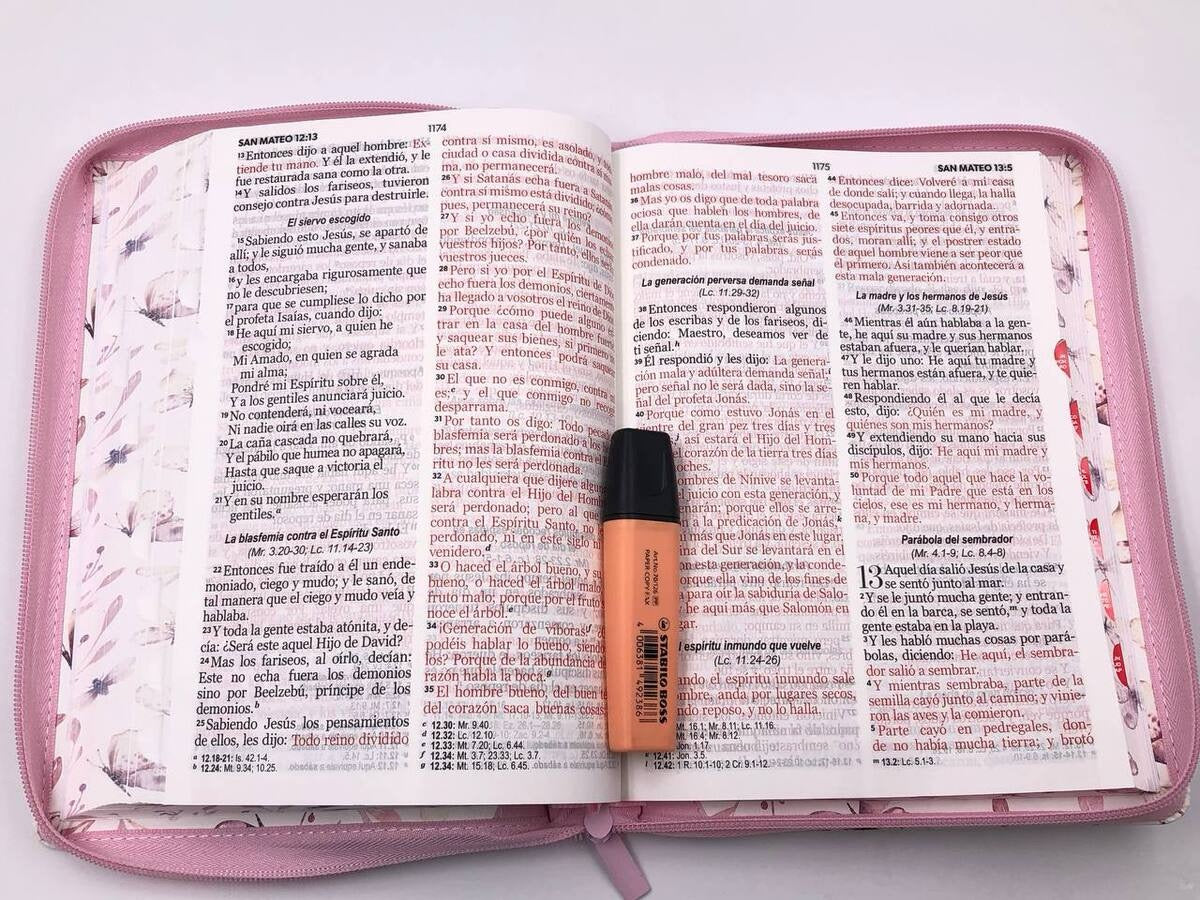 SAN MATEO 12:13
1174
13 Entonces dijo a aquel hombre: Ex-
tiende tu mano. Y él la extendió, y le
fue restaurada sana como la otra.
14 Y salidos los fariseos, tuvieron
consejo contra Jesús para destruirle.
El siervo escogido
15 Sabiendo esto Jesús, se apartó de
allí; y le siguió mucha gente, y sanaba
a todos,
16 y les encargaba rigurosamente que
no le descubriesen;
17 para que se cumpliese lo dicho por
el profeta Isaías, cuando dijo:
18 He aquí mi siervo, a quien he
escogido;
Mi Amado, en quien se agrada
mi alma;
Pondré mi Espíritu sobre él,
Y a los gentiles anunciará juicio.
19 No contenderá, ni voceará,
Ni nadie oirá en las calles su voz.
20 La caña cascada no quebrará,
Y el pábilo que humea no apagará,
Hasta que saque a victoria el
juicio.
21 Y en su nombre esperarán los
gentiles.a
La blasfemia contra el Espíritu Santo
(Mr. 3.20-30; Lc. 11.14-23)
22 Entonces fue traído a él un ende-
moniado, ciego y mudo; y le sanó, de
tal manera que el ciego y mudo veía y
hablaba.
23 Y toda la gente estaba atónita, y de-
cía: ¿Será este aquel Hijo de David?
24 Mas los fariseos, al oírlo, decían:
Este no echa fuera los demonios
sino por Beelzebú, príncipe de los
demonios.b
25 Sabiendo Jesús los pensamientos
de ellos, les dijo: Todo reino dividido
a 12.18-21: Is. 42.1-4.
b 12.24: Mt. 9.34; 10.25.
contra sí mismo, es asolado, y
ciudad o casa dividida contra sí
ma, no permanecerá.
26 Y si Satanás echa fuera a Satanás
contra sí mismo está dividido; ¿cómo
pues, permanecerá su reino?
27 Y si yo echo fuera los demonios
por Beelzebú, ¿por quién los echan
vuestros hijos? Por tanto, ellos serán
vuestros jueces.
28 Pero si yo por el Espíritu de Dios
echo fuera los demonios, ciertamente
ha llegado a vosotros el reino de Dios
29 Porque ¿cómo puede alguno en-
trar en la casa del hombre fuerte
y saquear sus bienes, si primero no
le ata? Y entonces podrá saquear
su casa.
30 El que no es conmigo, contra mí
es;c y el que conmigo no recoge
desparrama.
31 Por tanto os digo: Todo pecado
blasfemia será perdonado a los hom-
bres; mas la blasfemia contra el
ritu no les será perdonada.
32 A cualquiera que dijere alguna
labra contra el Hijo del Hombre
será perdonado; pero al que
contra el Espíritu Santo, no
perdonado, ni en este siglo ni
venidero.d
33 O haced el árbol bueno, y su
bueno, o haced el árbol malo,
fruto malo; porque por el fruto
noce el árbol.e
34 ¡Generación de víboras!f
podéis hablar lo bueno, siendo
los? Porque de la abundancia
razón habla la boca.g
35 El hombre bueno, del buen
del corazón saca buenas cosas;
c 12.30: Mr. 9.40.
d 12.32: Lc. 12.10.
e 12.33: Mt. 7.20; Lc. 6.44.
f 12.34: Mt. 3.7; 23.33; Lc. 3.7.
g 12.34: Mt. 15.18; Lc. 6.45.
1175
SAN MATEO 13:5
hombre malo, del mal tesoro saca
malas cosas.
36 Mas yo os digo que de toda palabra
ociosa que hablen los hombres, de
ella darán cuenta en el día del juicio.
37 Porque por tus palabras serás jus-
tificado, y por tus palabras serás
condenado.
La generación perversa demanda señal
(Lc. 11.29-32)
38 Entonces respondieron algunos
de los escribas y de los fariseos, di-
ciendo: Maestro, deseamos ver de
ti señal.h
39 Él respondió y les dijo: La genera-
ción mala y adúltera demanda señal;i
pero señal no le será dada, sino la se-
ñal del profeta Jonás.
40 Porque como estuvo Jonás en el
vientre del gran pez tres días y tres
así estará el Hijo del Hom-
corazón de la tierra tres días
noches.
hombres de Nínive se levanta-
juicio con esta generación, y
condenarán; porque ellos se arre-
a la predicación de Jonás,k
más que Jonás en este lugar.
reina del Sur se levantará en el
esta generación, y la conde-
porque ella vino de los fines de
para oír la sabiduría de Salo-
he aquí más que Salomón en
lugar.
espíritu inmundo que vuelve
(Lc. 11.24-26)
Cuando el espíritu inmundo sale
hombre, anda por lugares secos,
reposo, y no lo halla.
Mt. 16.1; Mr. 8.11; Lc. 11.16.
Mt. 16.4; Mr. 8.12.
Jon. 1.17.
12.41: Jon. 3.5.
l 12.42: 1 R. 10.1-10; 2 Cr. 9.1-12.
44 Entonces dice: Volveré a mi casa
de donde salí; y cuando llega, la halla
desocupada, barrida y adornada.
45 Entonces va, y toma consigo otros
siete espíritus peores que él, y entra-
dos, moran allí; y el postrer estado
de aquel hombre viene a ser peor que
el primero. Así también acontecerá a
esta mala generación.
La madre y los hermanos de Jesús
(Mr. 3.31-35; Lc. 8.19-21)
46 Mientras él aún hablaba a la gen-
te, he aquí su madre y sus hermanos
estaban afuera, y le querían hablar.
47 Y le dijo uno: He aquí tu madre y
tus hermanos están afuera, y te quie-
ren hablar.
48 Respondiendo él al que le decía
esto, dijo: ¿Quién es mi madre, y
quiénes son mis hermanos?
49 Y extendiendo su mano hacia sus
discípulos, dijo: He aquí mi madre y
mis hermanos.
50 Porque todo aquel que hace la vo-
luntad de mi Padre que está en los
cielos, ese es mi hermano, y herma-
na, y madre.
Parábola del sembrador
(Mr. 4.1-9; Lc. 8.4-8)
13 Aquel día salió Jesús de la casa y
se sentó junto al mar.
2 Y se le juntó mucha gente; y entran-
do él en la barca, se sentó,m y toda la
gente estaba en la playa.
3 Y les habló muchas cosas por pará-
bolas, diciendo: He aquí, el sembra-
dor salió a sembrar.
4 Y mientras sembraba, parte de la
semilla cayó junto al camino; y vinie-
ron las aves y la comieron.
5 Parte cayó en pedregales, don-
de no había mucha tierra; y brotó
m 13.2: Lc. 5.1-3.
STABILO BOSS
Art.No. 70/126
PAPER COPY FAX
4 006381 492386